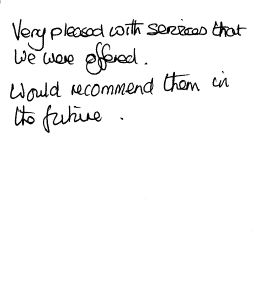 Very pleased with services that
we were offered.
Would recommend them in
the future.